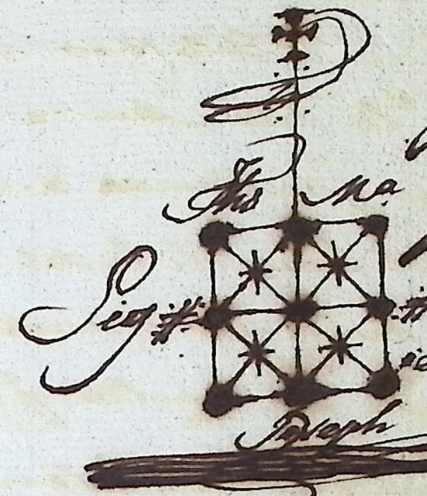 Jhs Ma
Sig #. #
Joseph